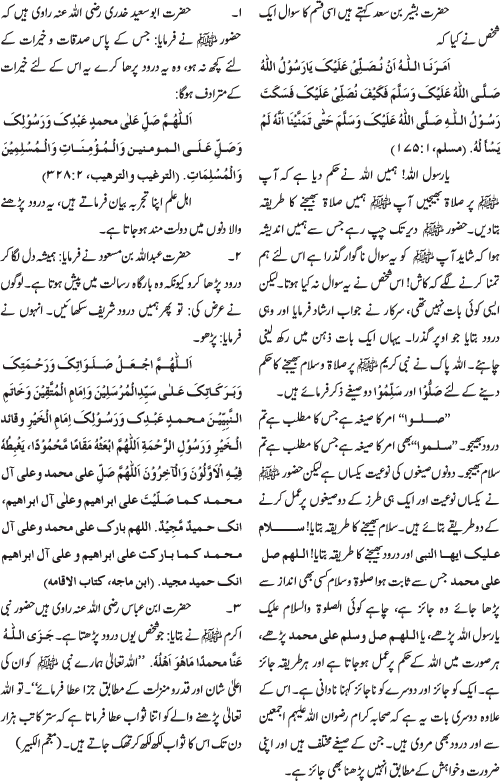 حضرت بشیر بن سعد کہتے ہیں اسی قسم کا سوال ایک
شخص نے کیا کہ
اَمَرَنَا اللّٰهُ اَنْ نُّصَلِّیَ عَلَیْکَ یَارَسُوْلَ اللّٰهِ
صَلَّی اللّٰهُ عَلَیْکَ وَسَلَّمَ فَکَیْفَ نُصَلِّیْ عَلَیْکَ فَسَکَتَ
رَسُوْلُ اللّٰهِ صَلَّی اللّٰهُ عَلَیْکَ وَسَلَّمَ حَتّٰی تَمَنَّیْنَا اَنَّهٗ لَمْ
یَسأَلْهُ. (مسلم، ۱:۱۴۵)
یارسول اللہ! ہمیں اللہ نے حکم دیا ہے کہ آپ
ﷺ پر صلاۃ بھیجیں آپ ﷺ ہمیں صلاۃ بھیجنے کا طریقہ
بتادیں۔ حضور ﷺ دیر تک چپ رہے جس سے ہمیں اندیشہ
ہوا کہ شاید آپ ﷺ کو یہ سوال ناگوار گذرا ہے اس لئے ہم
تمنا کرنے لگے کہ کاش! اس شخص نے یہ سوال نہ کیا ہوتا۔ لیکن
ایسی کوئی بات نہیں تھی، سرکار نے جواب ارشاد فرمایا اور وہی
درود بتایا جو اوپر گذرا۔ یہاں ایک بات ذہن میں رکھ لینی
چاہئے۔ اللہ پاک نے نبی کریم ﷺ پر صلاۃ وسلام بھیجنے کا حکم
دینے کے لئے صَلُّوْا اور سَلِّمُوْا دو صیغے ذکر فرمائے ہیں۔
’’صلوا‘‘ امر کا صیغہ ہے جس کا مطلب ہے تم
درود بھیجو۔ ’’سلموا‘‘ بھی امر کا صیغہ ہے جس کا مطلب ہے تم
سلام بھیجو۔ دونوں صیغوں کی نوعیت یکساں ہے لیکن حضور ﷺ
نے یکساں نوعیت اور ایک ہی طرز کے دو صیغوں پر عمل کرنے
کے دو طریقے بتائے ہیں۔ سلام بھیجنے کا طریقہ بتایا! سلام
علیک ایها النبی اور درود بھیجنے کا طریقہ بتایا! اللهم صل
علی محمد جس سے ثابت ہوا صلوۃ وسلام کسی بھی انداز سے
پڑھا جائے وہ جائز ہے، چاہے کوئی الصلوۃ والسلام علیک
یارسول اللہ پڑھے، یا اللهم صل وسلم علی محمد پڑھے،
ہر صورت میں اللہ کے حکم پر عمل ہوجاتا ہے اور ہر طریقہ جائز
ہے۔ ایک کو جائز اور دوسرے کو ناجائز کہنا نادانی ہے۔ اس کے
علاوہ دوسری بات یہ ہے کہ صحابہ کرام رضوان اللہ علیہم اجمعین
سے اور درود بھی مروی ہیں۔ جن کے صیغے مختلف ہیں اور اپنی
ضرورت وخواہش کے مطابق انہیں پڑھنا بھی جائز ہے۔
۱۔ حضرت ابوسعید خدری رضی اللہ عنہ راوی ہیں کہ
حضور ﷺ نے فرمایا: جس کے پاس صدقات و خیرات کے
لئے کچھ نہ ہو، وہ یہ درود پڑھا کرے یہ اس کے لئے خیرات
کے مترادف ہوگا:
اَللّٰهُمَّ صَلِّ عَلٰی محمدٍ عَبْدِکَ وَرَسُوْلِکَ
وَصَلِّ عَلَی المومنین وَالْمُؤْمِنَاتِ وَالْمُسْلِمِیْنَ
وَالْمُسْلِمَاتِ. (الترغیب والترهیب، ۲:۳۲۸)
اہل علم اپنا تجربہ بیان فرماتے ہیں، یہ درود پڑھنے
والا دنوں میں دولت مند ہوجاتا ہے۔
۲۔ حضرت عبداللہ بن مسعود نے فرمایا: ہمیشہ دل لگا کر
درود پڑھا کرو کیونکہ وہ بارگاہ رسالت میں پیش ہوتا ہے۔ لوگوں
نے عرض کی: تو پھر ہمیں درود شریف سکھائیں۔ انہوں نے
فرمایا: پڑھو۔
اَللّٰهُمَّ اجْعَلْ صَلَوَاتِکَ وَرَحْمَتِکَ
وَبَرَکَاتِکَ عَلٰی سَیِّدِالْمُرْسَلِیْنَ وَاِمَامِ الْمُتَّقِیْنَ وَخَاتِمِ
النَّبِیّیْنَ محمدٍ عَبْدِکَ وَرَسُوْلِکَ اِمَامِ الْخَیْرِ وقائد
الْخَیْرِ وَرَسُوْلِ الرَّحْمَةِ اَللّٰهُمَّ ابْعَثْهُ مَقَامًا مَّحْمُوْدًا، یَغْبِطُهٗ
فِیْهِ الْاَوَّلُوْنَ وَالْاٰخِرُوْنَ اَللّٰهُمَّ صَلِّی علی محمد وعلی آل
محمد کما صَلَّیْتَ عَلٰی ابراهیم وعلٰی آل ابراهیم،
انک حمیدٌ مَّجِیْدٌ. اللهم بارک علی محمد وعلی آل
محمد کما بارکت علی ابراهیم و علی آل ابراهیم
انک حمید مجید. (ابن ماجه، کتاب الاقامه)
۳۔ حضرت ابن عباس رضی اللہ عنہ راوی ہیں حضور نبی
اکرم ﷺ نے بتایا: جو شخص یوں درود پڑھتا ہے۔ جَزَی اللّٰهُ
عَنَّا محمدًا مَاهُوَ اَهْلُهٗ. ’’اللہ تعالیٰ ہمارے نبی ﷺ کو ان کی
اعلیٰ شان اور قدر و منزلت کے مطابق جزا عطا فرمائے‘‘۔ تو اللہ
تعالیٰ پڑھنے والے کو اتنا ثواب عطا فرماتا ہے کہ ستر کاتب ہزار
دن تک اس کا ثواب لکھ لکھ کر تھک جاتے ہیں۔ (معجم الکبیر)